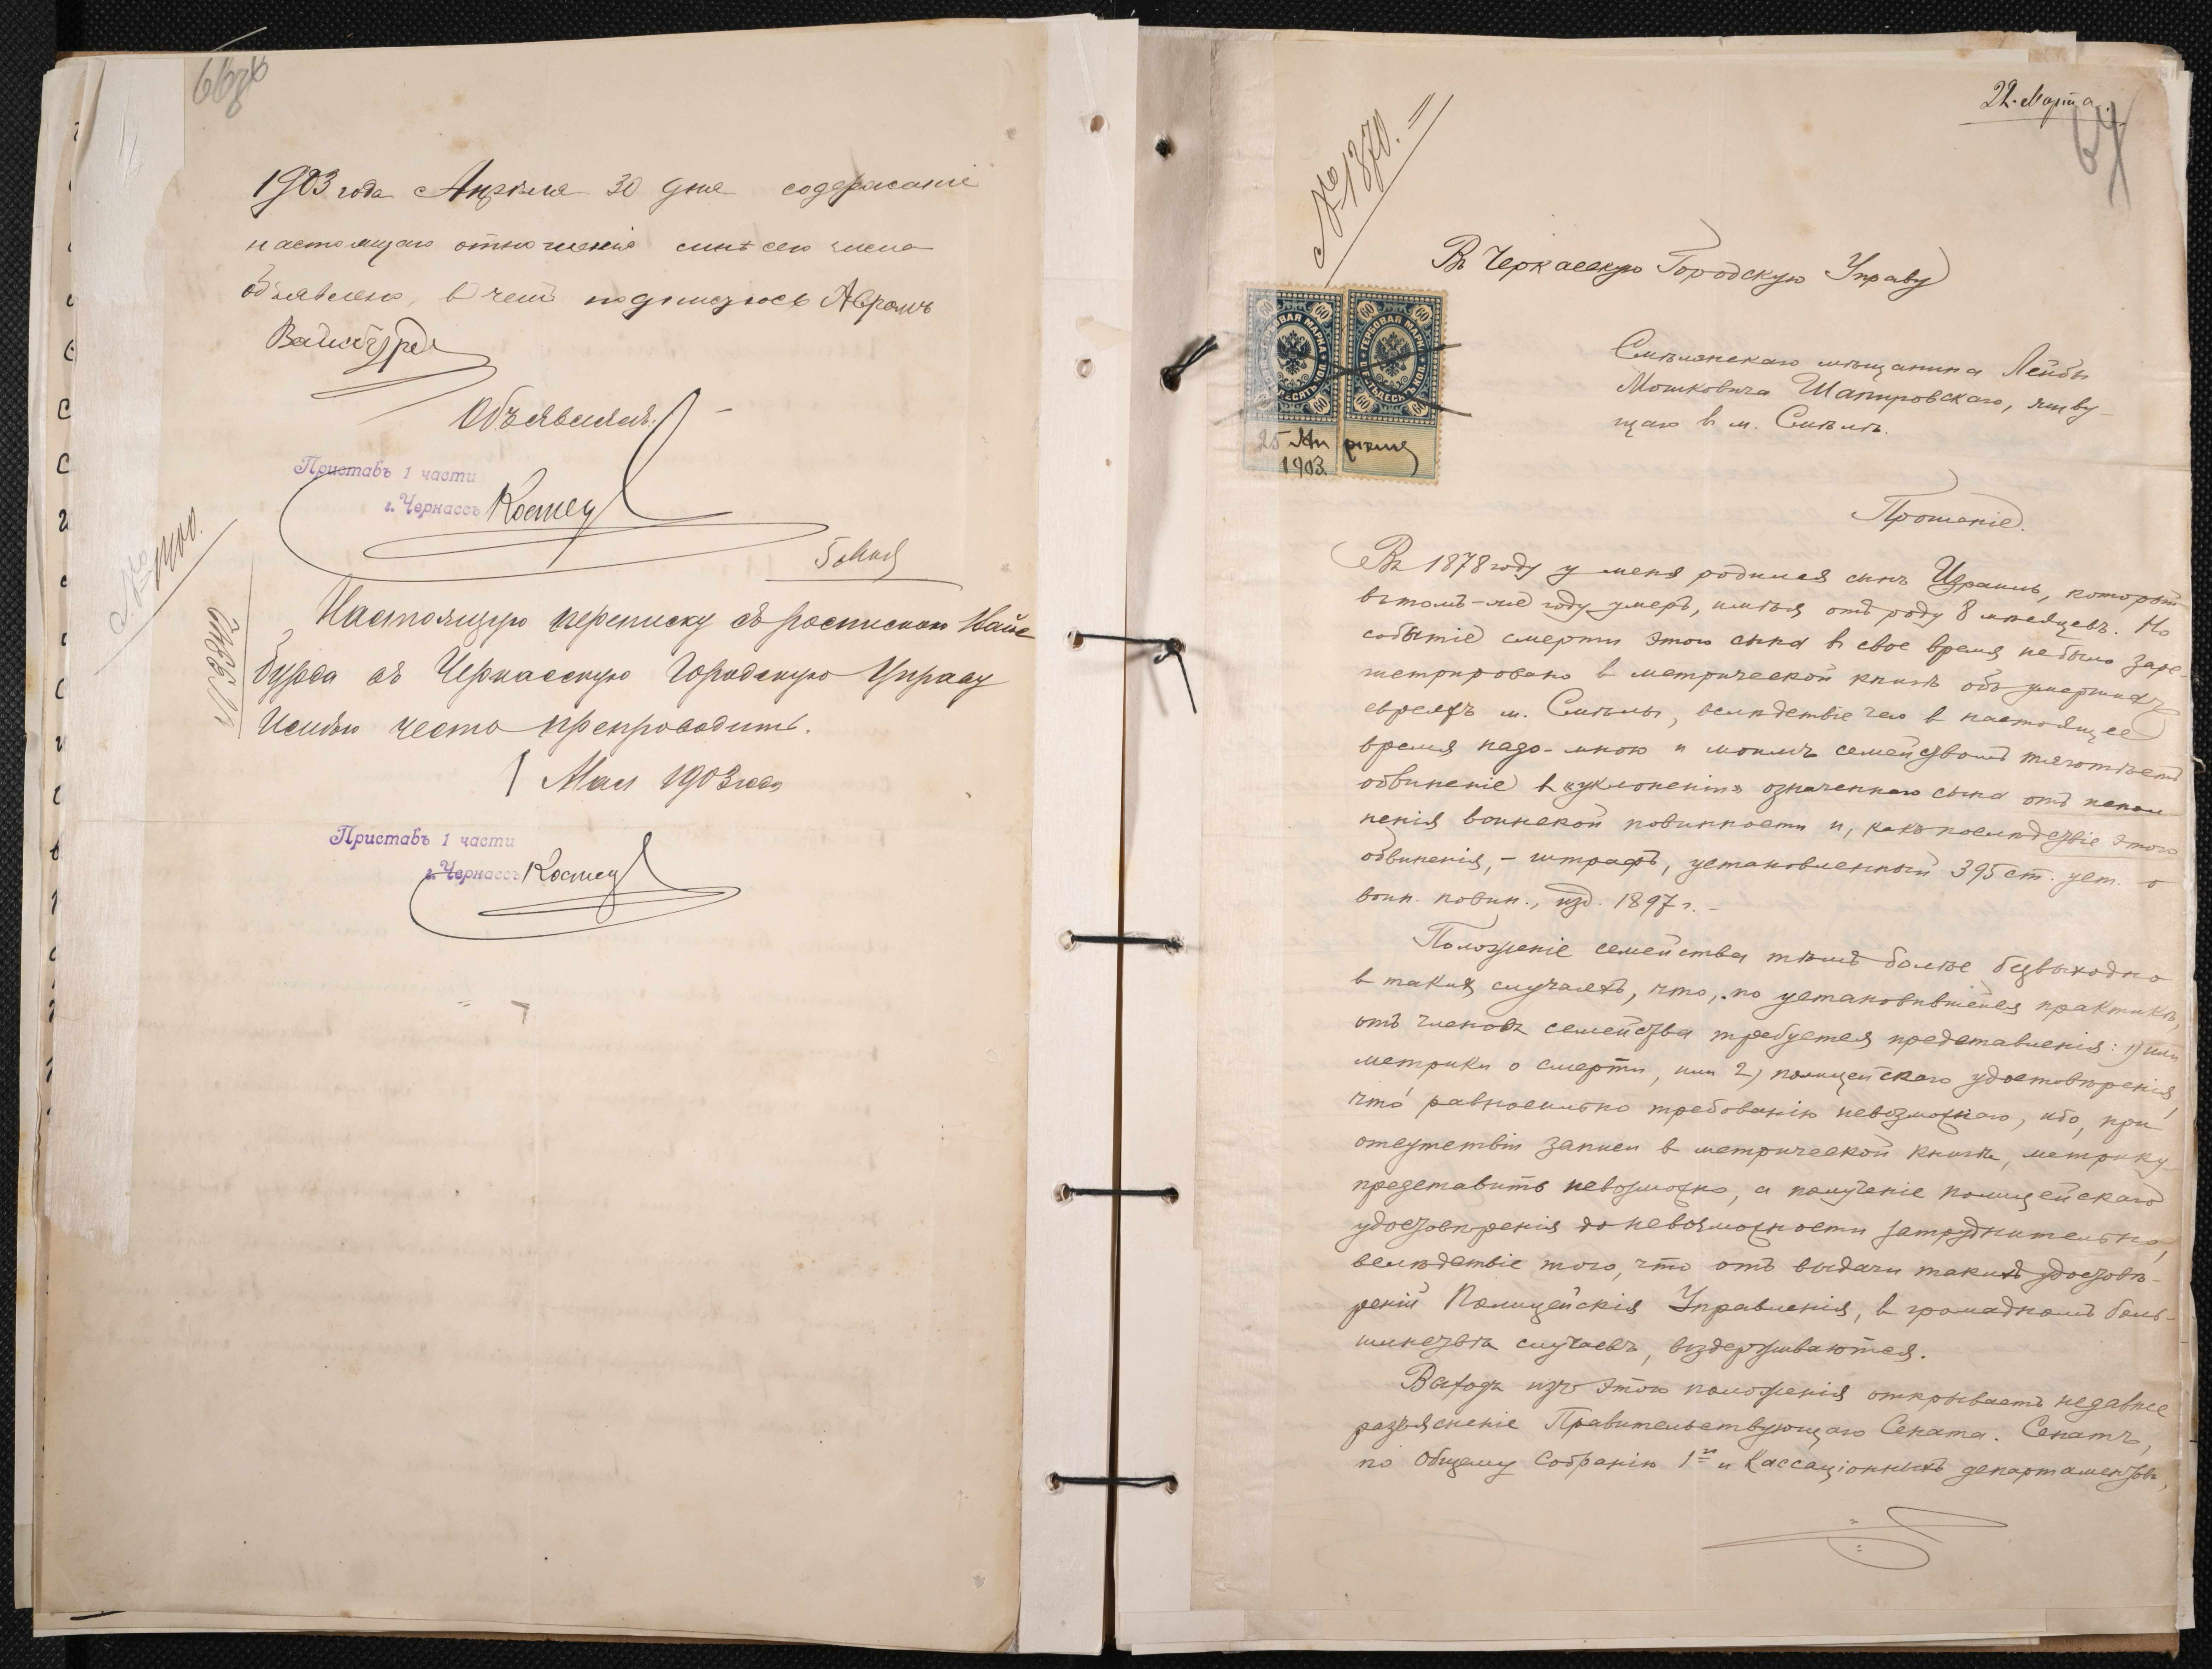 1903 года Апрѣля 30 дня содержаніе
настоящаго отношенія мнѣ сего числа
объявлено, в чемъ подписуюсь Аврамъ
Вайсбурдъ
Объявилъ:
Приставъ 1 части
г. Черкассъ
5 Мая
№ 1400.
Настоящую переписку съ роспискою Вайс
бурда въ Черкасскую Городскую Управу
Имѣю честь препроводить.
1 Мая 1903 года
Приставъ 1 части
г. Черкассъ
22. Марта.
67
№ 1370.
Въ Черкасскую Городскую Управу
ГЕРБОВАЯ МАРКА
60
ГЕРБОВАЯ МАРКА
ШЕСТЬДЕСЯТЪ КОП.
60
25 Апрѣля
1903.
Смѣлянскаго мѣщанина Лейбы
Мошковича Шапировскаго, живу-
щаго в м. Смѣлѣ.
Прошеніе.
Въ 1878 году у меня родился сынъ Израиль, который
въ томъ-же году умеръ, имѣя отъ роду 8 мѣсяцевъ. Но
событіе смерти этого сына в свое время не было заре-
гистрировано в метрической книгѣ объ умершихъ
евреяхъ м. Смѣлы, вслѣдствіе чего в настоящее
время надо-мною и моимъ семействомъ тяготѣетъ
обвиненіе в «уклоненіи» означеннаго сына отъ испол
ненія воинской повинности и, какъ послѣдствіе этого
обвиненія, – штрафъ, установленный 395 ст. уст. о
воин. повин., изд. 1897 г. –
Положеніе семейства тѣмъ болѣе безвыходно
в такихъ случаяхъ, что, по установившейся практикѣ,
отъ членовъ семейства требуется представленія: 1) или
метрики о смерти, или 2) полицейскаго удостовѣренія,
что́ равносильно требованію невозможнаго, ибо, при
отсутствіи записи в метрической книгѣ, метрику
представить невозможно, а полученіе полицейскаго
удостовѣренія до невозможности затруднительно,
вслѣдствіе того, что отъ выдачи такихъ удостовѣ-
реній Полицейскія Управленія, в громадномъ боль-
шинствѣ случаевъ, воздерживаются.
Выходъ изъ этого положенія открываетъ недавнее
разъясненіе Правительствующаго Сената. Сенатъ,
по Общему Собранію 1го и Кассаціонныхъ департаментовъ,